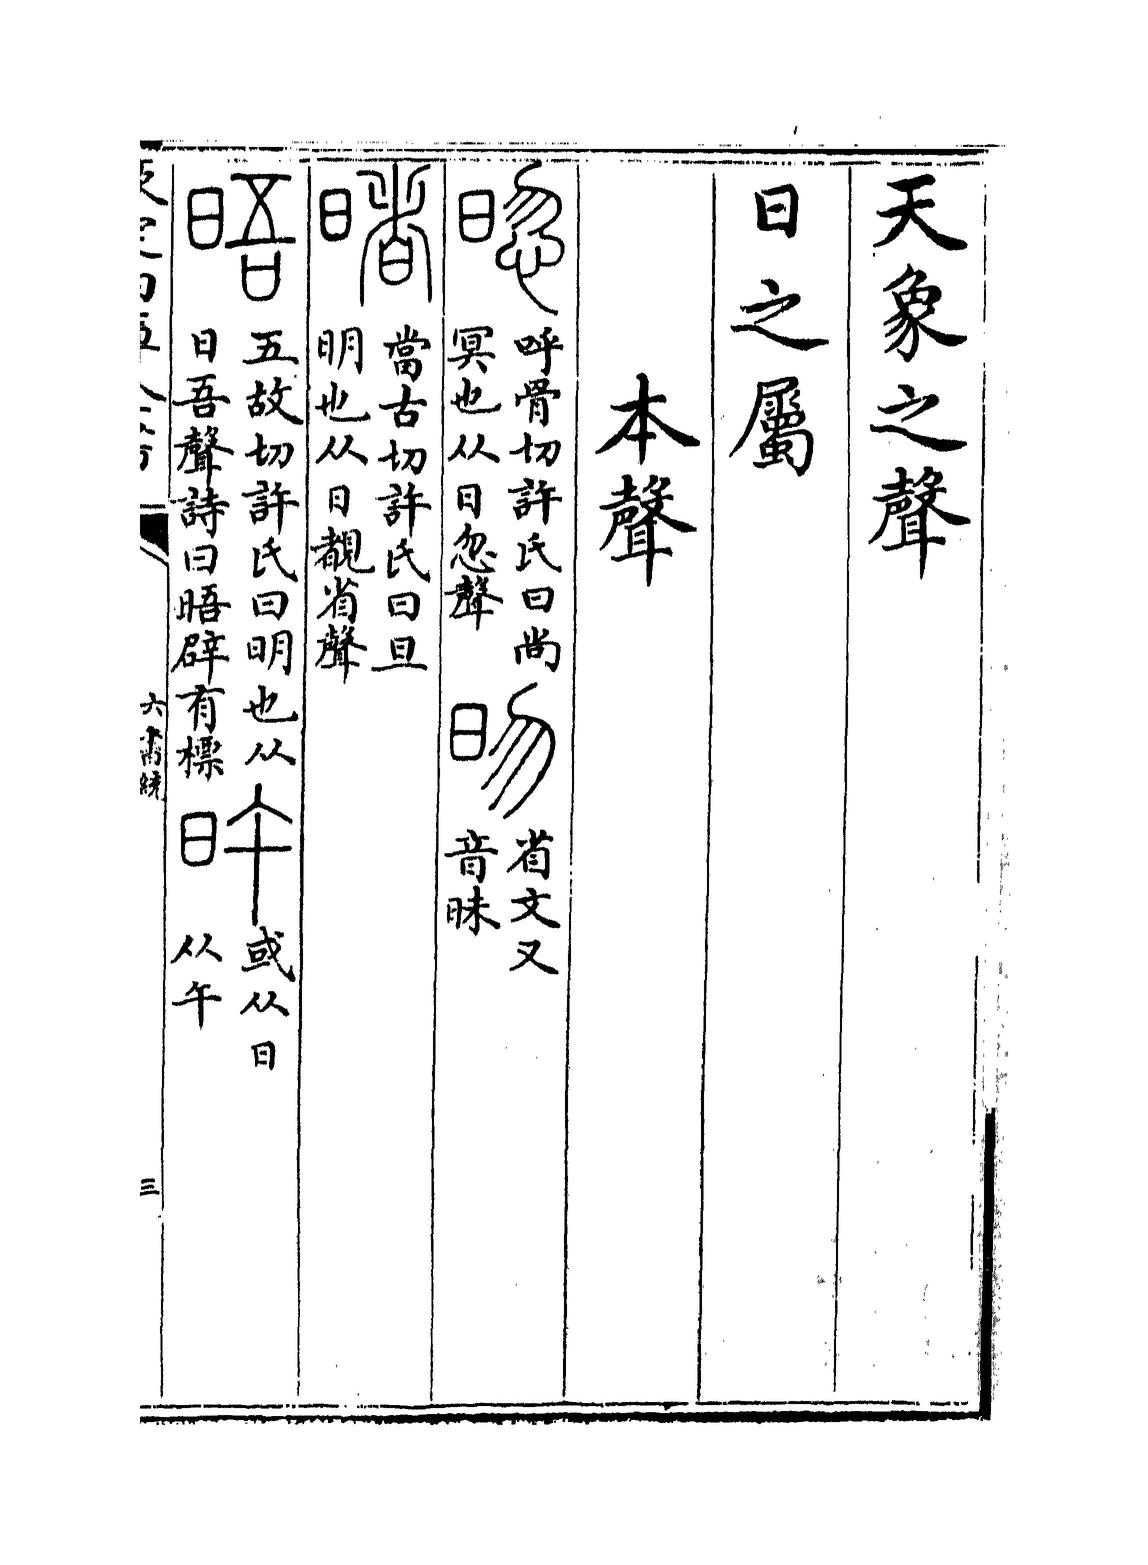 天象之聲
日之屬
本聲
呼骨切許氏曰尚
冥也从日忽聲
昒
省文又
音昧
暏
當古切許氏曰旦
明也从日覩省聲
晤
五故切許氏曰明也从
日吾聲詩曰晤辟有標
旿
或从日
从午
六書統
三